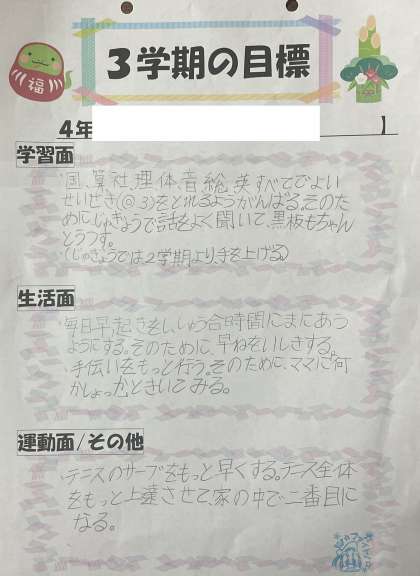 福
3学期の目標
4年
】
学習面
・国、算、社、理、体、音、総、英すべてでよい
せいせき(◎3)をとれるようがんばる。そのた
めにじゅぎょうで話をよく聞いて、黒板もちゃん
とうつす。
(じゅぎょうでは2学期より、手を上げる。)
生活面
・毎日早起きをし、しゅう合時間にまにあう
ようにする。そのために、早ねをいしきする。
・手伝いをもっと行う。そのために、ママに「何
かしょっか」ときいてみる。
運動面/その他
・テニスのサーブをもっと早くする。テニス全体
をもっと上達させて、家の中で二番目に
なる。